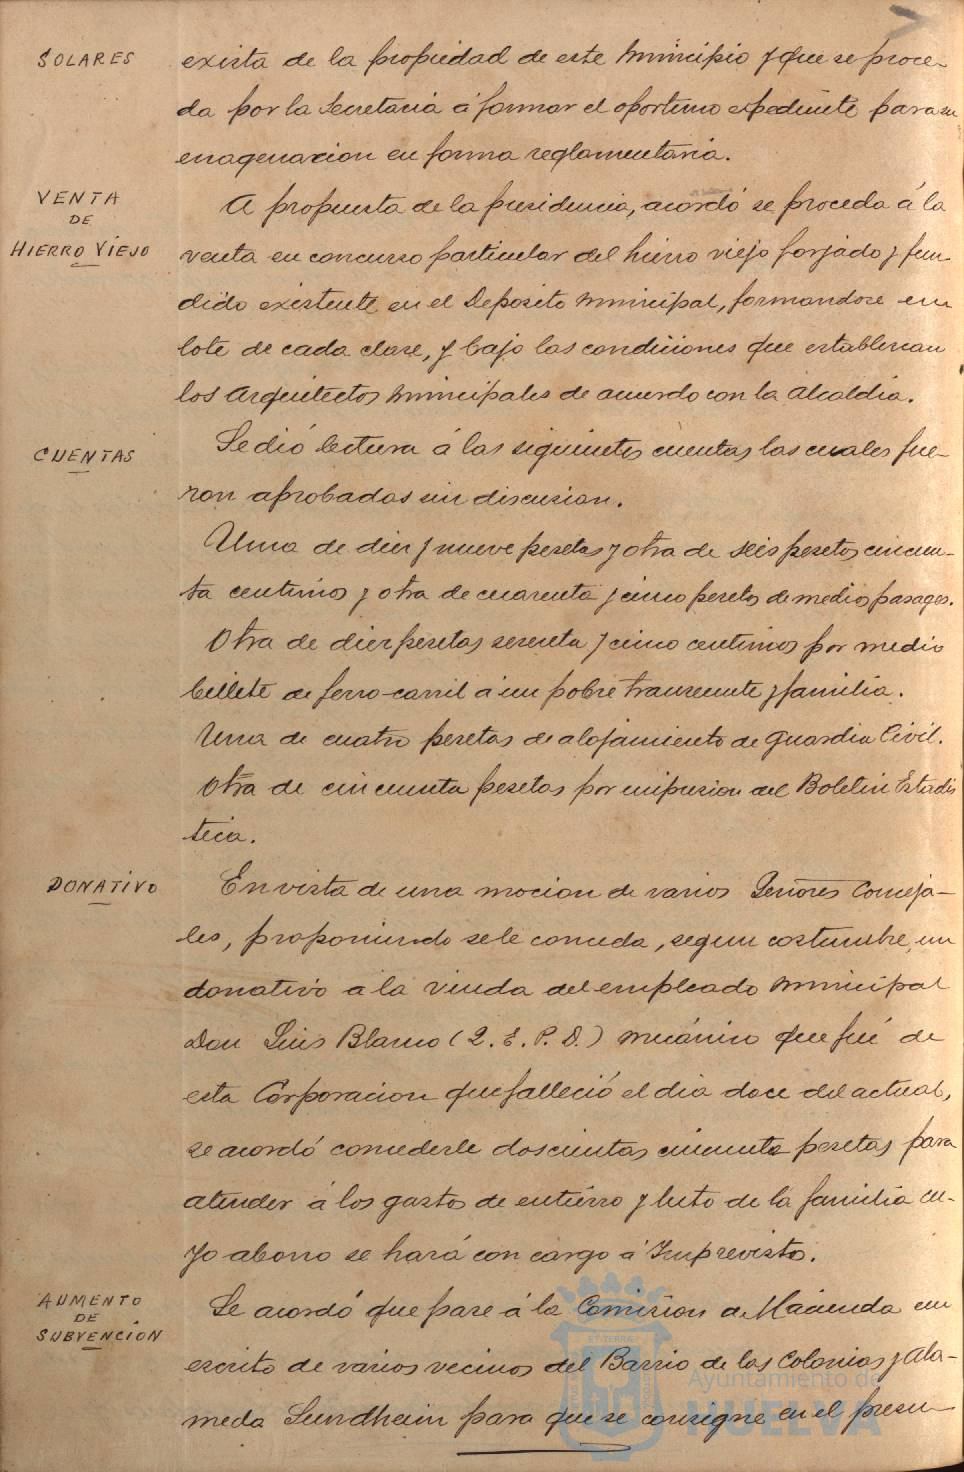 SOLARES
exista de la propiedad de este Municipio y que se proce-
da por la Secretaria á formar el oportuno expediente para su
enagenacion en forma reglamentaria.
VENTA
DE
HIERRO VIEJO
A propuesta de la presidencia, acordó se proceda á la
venta en concurso particular del hierro viejo forjado y fun-
dido existente en el Deposito Municipal, formandose un
lote de cada clase, y bajo las condiciones que establezcan
los Arquitectos Municipales de acuerdo con la Alcaldia.
CUENTAS
Se dió lectura á las siguientes cuentas las cuales fue-
ron aprobadas sin discusion.
Una de diez y nueve pesetas y otra de seis pesetas cincuen-
ta centimos y otra de cuarenta y cinco pesetas de medios pasages.
Otra de diez pesetas sesenta y cinco centimos por medio
billete de ferro-carril á un pobre transeunte y familia.
Una de cuatro pesetas de alojamiento de Guardia Civil.
Otra de cincuenta pesetas por impresion del Boletin Estadis
tica.
DONATIVO
En vista de una mocion de varios Señores Conceja-
les, proponiendo se le conceda, segun costumbre, un
donativo á la viuda del empleado Municipal
Don Luis Blanco (Q. E. P. D.) mecánico que fué de
esta Corporacion que falleció el dia doce del actual,
se acordó concederle doscientas cincuenta pesetas para
atender á los gastos de entierro y luto de la familia cu-
yo abono se hará con cargo á Imprevistos.
AUMENTO
DE
SUBVENCIÓN
Se acordó que pase á la Comision de Hacienda un
escrito de varios vecinos del Barrio de las Colonias y Ala-
meda Sundheim para que se consigne en el presu-
Ayuntamiento de
HUELVA